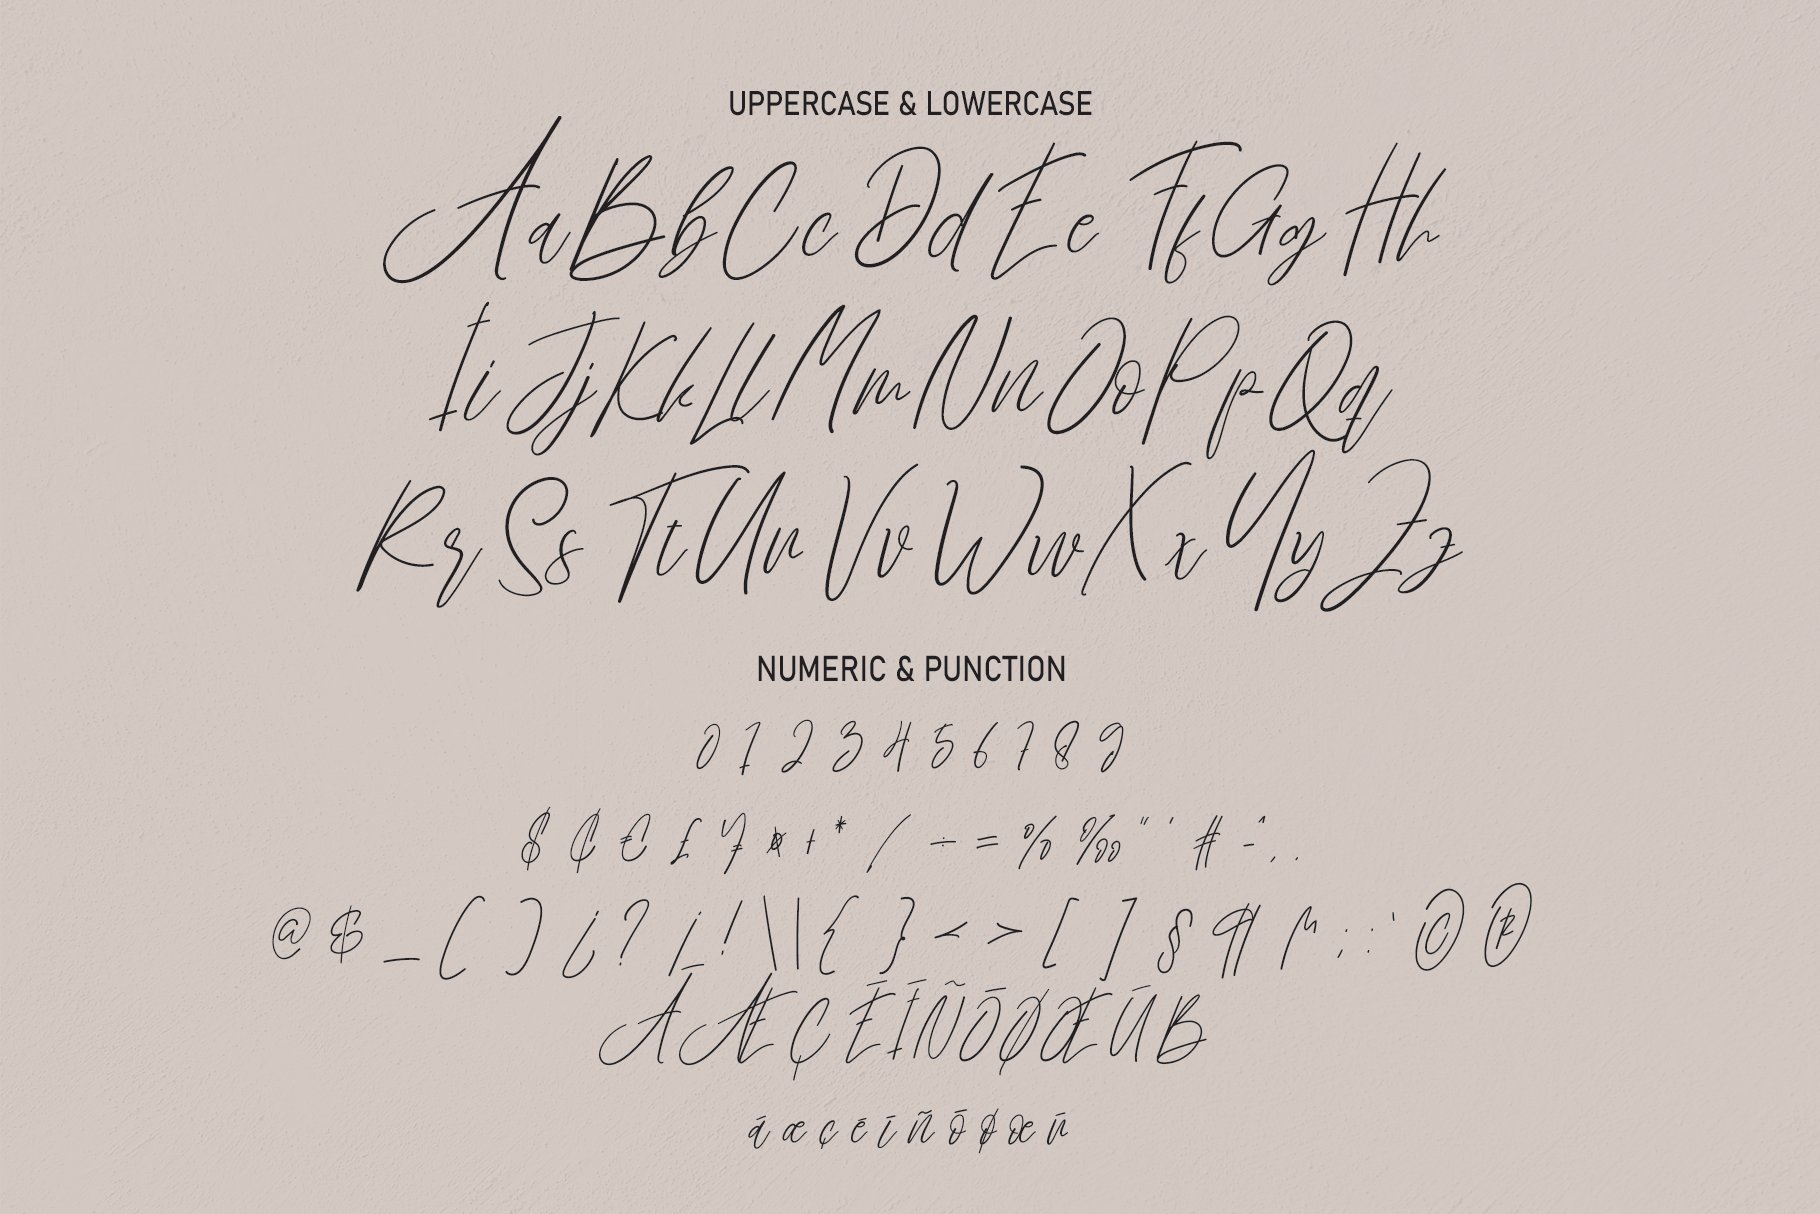 UPPERCASE & LOWERCASE
Aa Bb Cc Dd Ee Ff Gg Hh
Ii Jj Kk Ll Mm Nn Oo Pp Qq
Rr Ss Tt Uu Vv Ww Xx Yy Zz
NUMERIC & PUNCTION
0 1 2 3 4 5 6 7 8 9
$ ¢ € £ ¥ ¤ + * / ÷ = % ‰ " ' # - ^ , .
@ & _ ( ) ¿ ? ¡ ! \ | { } < > [ ] § ¶ ~ ; : ' © ®
Á Æ Ç É Í Ñ Ó Ø Œ Ú ß
á æ ç é í ñ ó ø œ ú